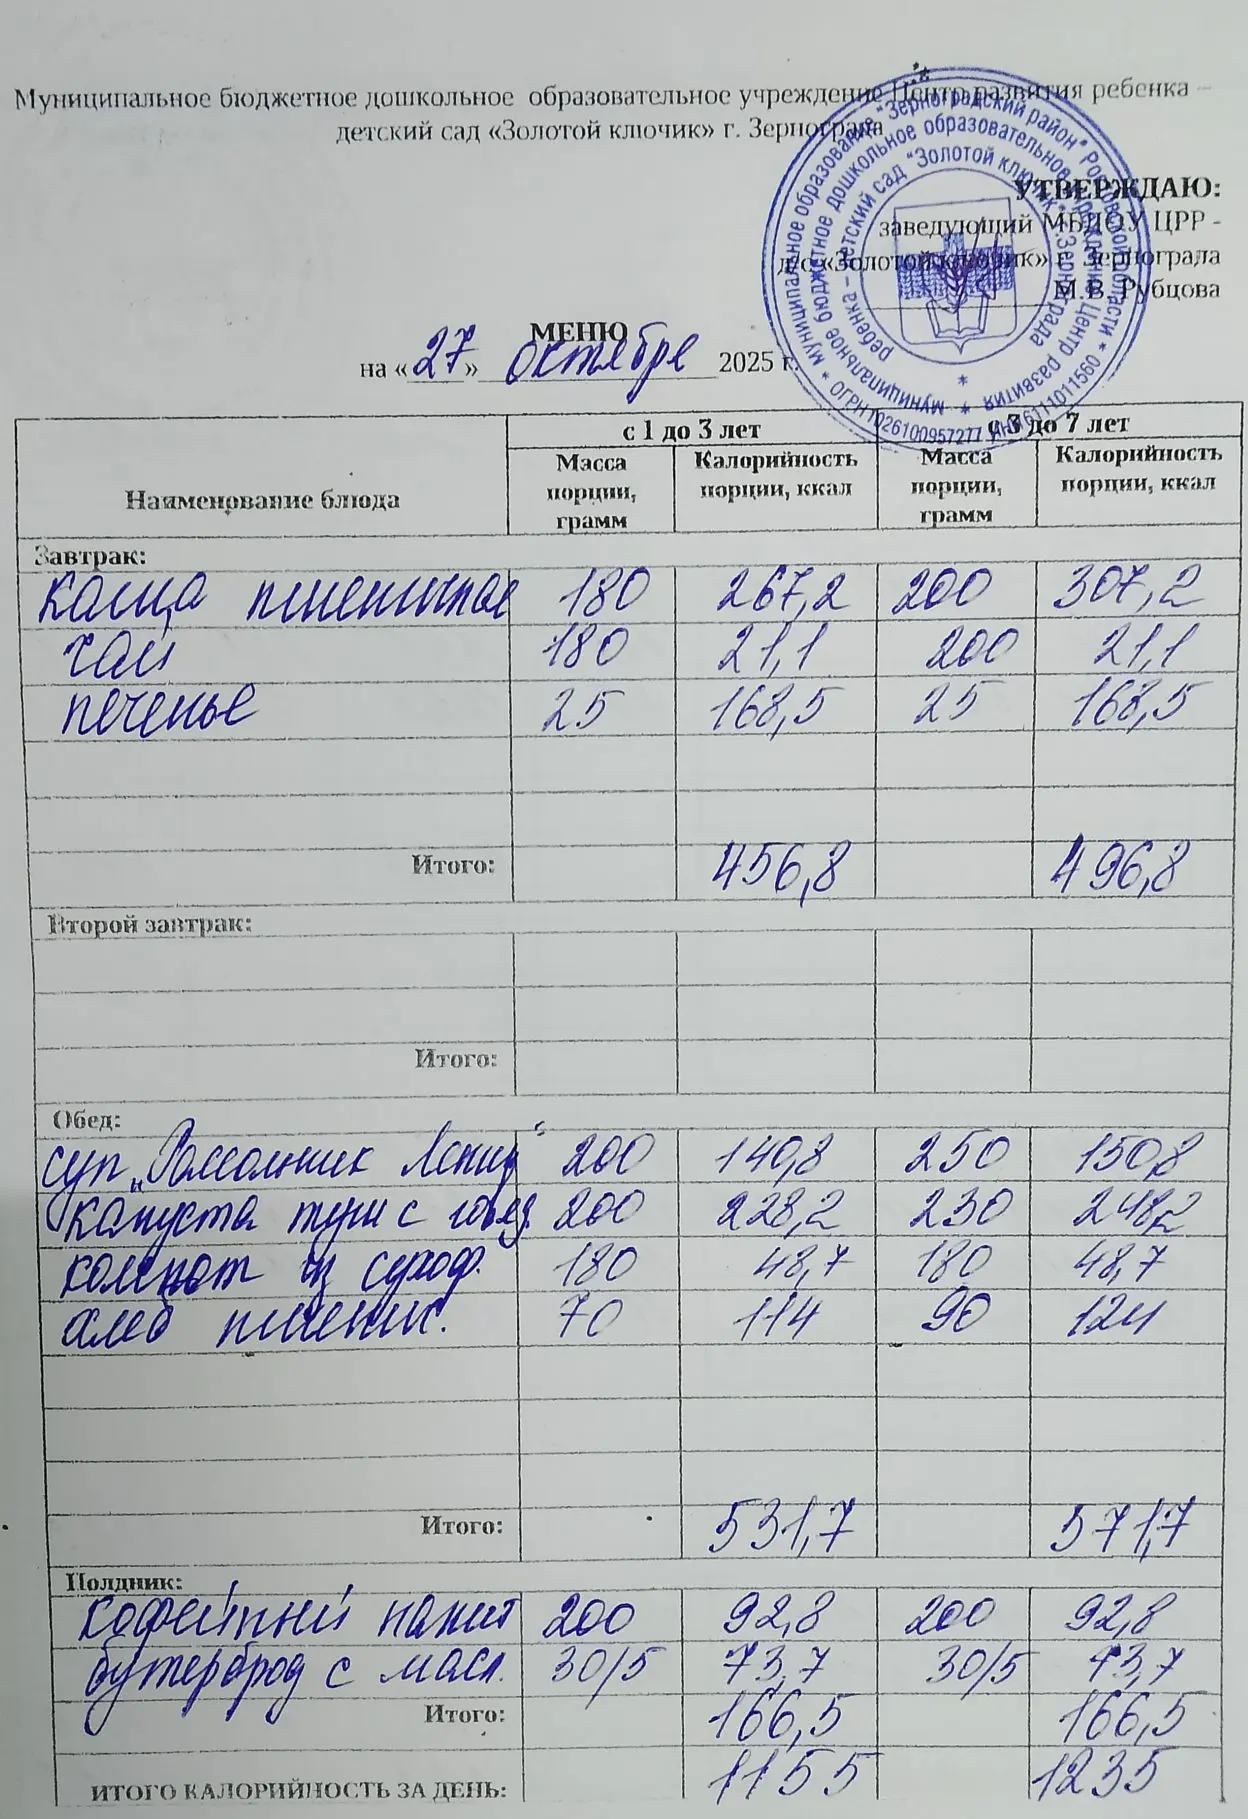 Муниципальное бюджетное дошкольное образовательное учреждение Центр развития ребенка –
детский сад «Золотой ключик» г. Зернограда
УТВЕРЖДАЮ:
заведующий МБДОУ ЦРР -
д/с «Золотой ключик» г. Зернограда
М.В. Рубцова
муниципальное образование "Зерноградский район" Ростовской области * ОГРН 1026100957277 ИНН 6111011560 *
муниципальное бюджетное дошкольное образовательное учреждение Центр развития
ребенка – детский сад "Золотой ключик" г. Зернограда
МЕНЮ
на «27» октября 2025 г.
Наименование блюда с 1 до 3 лет с 3 до 7 лет
Масса порции, грамм Калорийность порции, ккал Масса порции, грамм Калорийность порции, ккал
Завтрак:
каша пшеничная 180 267,2 200 307,2
чай 180 21,1 200 21,1
печенье 25 168,5 25 168,5
Итого: 456,8 496,8
Второй завтрак:
Итого:
Обед:
суп „Рассольник Ленинг“ 200 140,8 250 150,8
капуста туш с говяд. 200 228,2 230 248,2
компот из сухоф. 180 48,7 180 48,7
хлеб пшенич. 70 114 90 124
Итого: 531,7 571,7
Полдник:
кофейный напит 200 92,8 200 92,8
бутерброд с масл. 30/5 73,7 30/5 73,7
Итого: 166,5 166,5
ИТОГО КАЛОРИЙНОСТЬ ЗА ДЕНЬ: 1155 1235